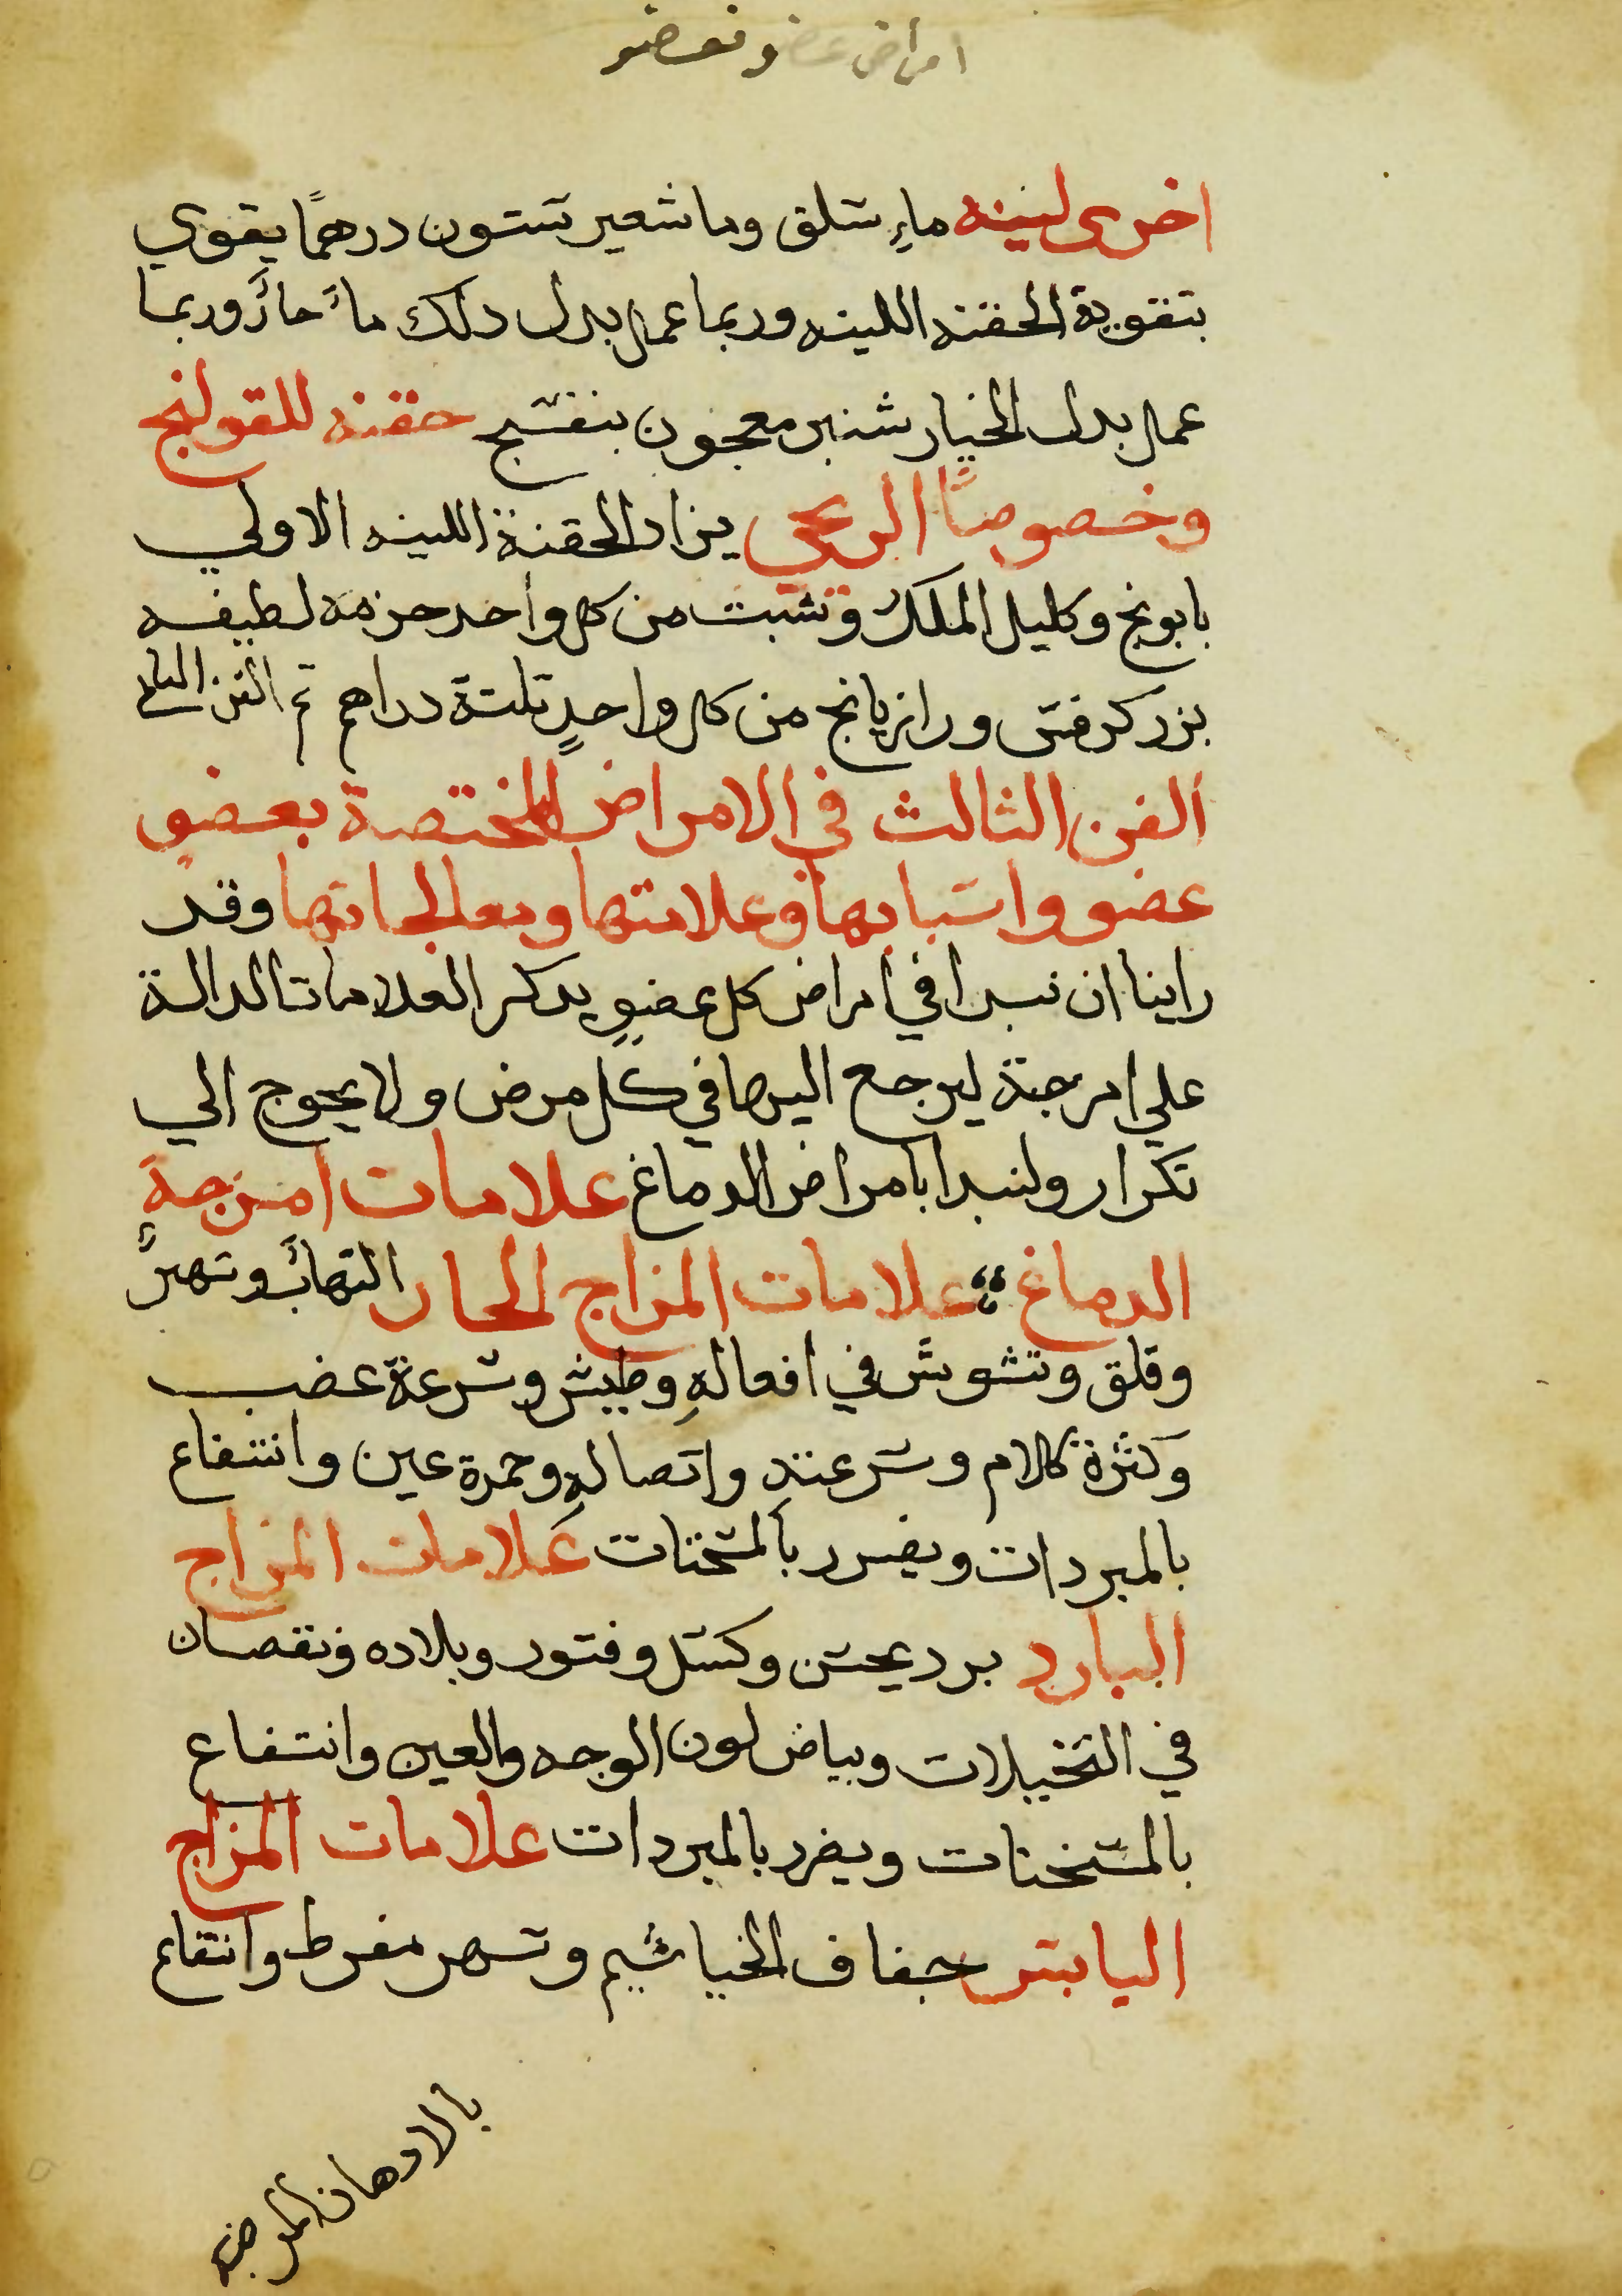 امراض عضو فعضو
اخرى لينه ماءِ سلق وما شعير ستون درهمًا يقوي
بتقوية الحقنه اللينه وربما عمل بدل دلك ماءً حارً وربما
عمل بدل الخيار شنبر معجون بنفسج حقنه للقولنج
وخصوصًا الريحي يزاد الحقنة اللينه الاولي
بابونج وكليل الملك وشبت من كل واحد حزمه لطيفه
بزر كرفس ورازيانج من كل واحدٍ تلتة دراهم تم الفن الثاني
الفن الثالث في الامراض المختصة بعضوٍ
عضو واسبابها وعلامتها ومعالجاتها وقد
راينا ان نبدا في امراض كل عضوٍ بدكر العلامات الدالة
علي امزجتة ليرجع اليها في كل مرض ولا يحوج الي
تكرار ولنبدا بامراض الدماغ علامات امزجة
الدماغ علامات المزاج الحار التهابً وسهرً
وقلق وتشوش في افعالهِ وطيش وسرعة غضب
وكثرة كلام وسرعته واتصالهِ وحمرة عين وانتفاع
بالمبردات ويضرر بالمسخنات علامات المزاج
البارد برد يحس وكسل وفتور وبلاده ونقصان
في التخيلات وبياض لون الوجه والعين وانتفاع
بالمسخنات ويضرر بالمبردات علامات المزاج
اليابس جفاف الخياشيم وسهر مفرط وانتفاع
بالادهان المرطبه